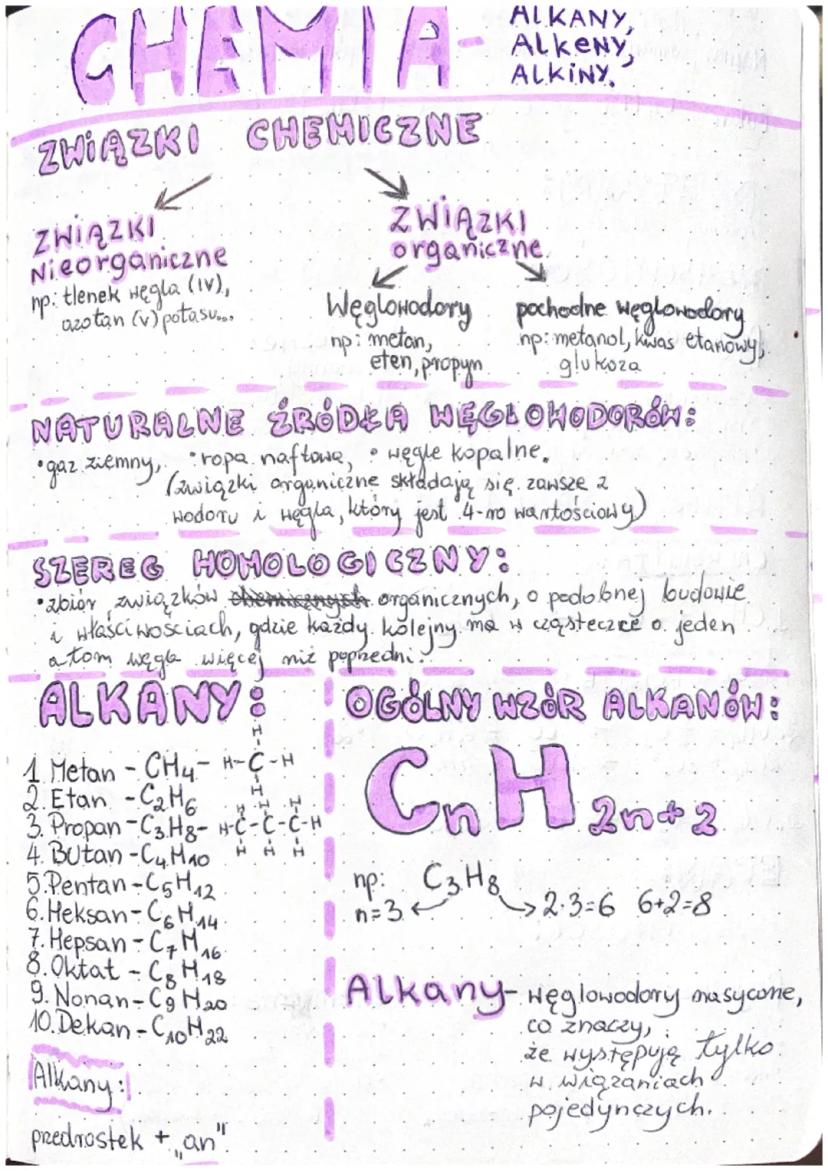 CHEMIA- ALKANY,
AlkeNY,
AlkiNY.
ZWIĄZKI CHEMICZNE
ZWIĄZKI
Nieorganiczne
np: tlenek węgla (IV),
azotan (V) potasu...
ZWIĄZKI
organiczne
Węglowodory
np: metan,
eten, propyn
pochodne węglowodory
np: metanol, kwas etanowy,
glukoza
NATURALNE ŹRÓDŁA WĘGLOWODORÓW:
• gaz ziemny, • ropa naftowa, • węgle kopalne.
(związki organiczne składają się zawsze z
wodoru i węgla, który jest 4-ro wartościowy)
SZEREG HOMOLOGICZNY:
• zbiór związków chemicznych organicznych, o podobnej budowie
i właściwościach, gdzie każdy kolejny ma w cząsteczce o jeden
atom węgla więcej niż poprzedni.
ALKANY:
H
1. Metan - CH4 - H-C-H
H
2. Etan - C2H6
H H H
3. Propan - C3H8 - H-C-C-C-H
H H H
4. Butan - C4H10
5. Pentan - C5H12
6. Heksan - C6H14
7. Hepsan - C7H16
8. Oktat - C8H18
9. Nonan - C9H20
10. Dekan - C10H22
Alkany:
przedrostek + „an"
OGÓLNY WZÓR ALKANÓW:
CnH2n+2
np: C3H8
n=3 2·3=6 6+2=8
Alkany - węglowodory nasycone,
co znaczy,
że występują tylko
w wiązaniach
pojedynczych.